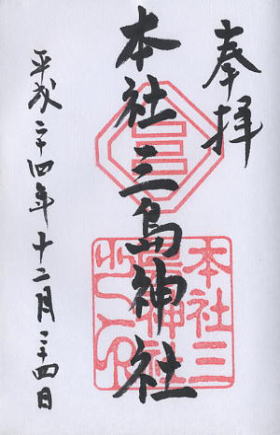 奉拝
本社三島神社
平成二十四年十二月二十四日
本社三
島神社